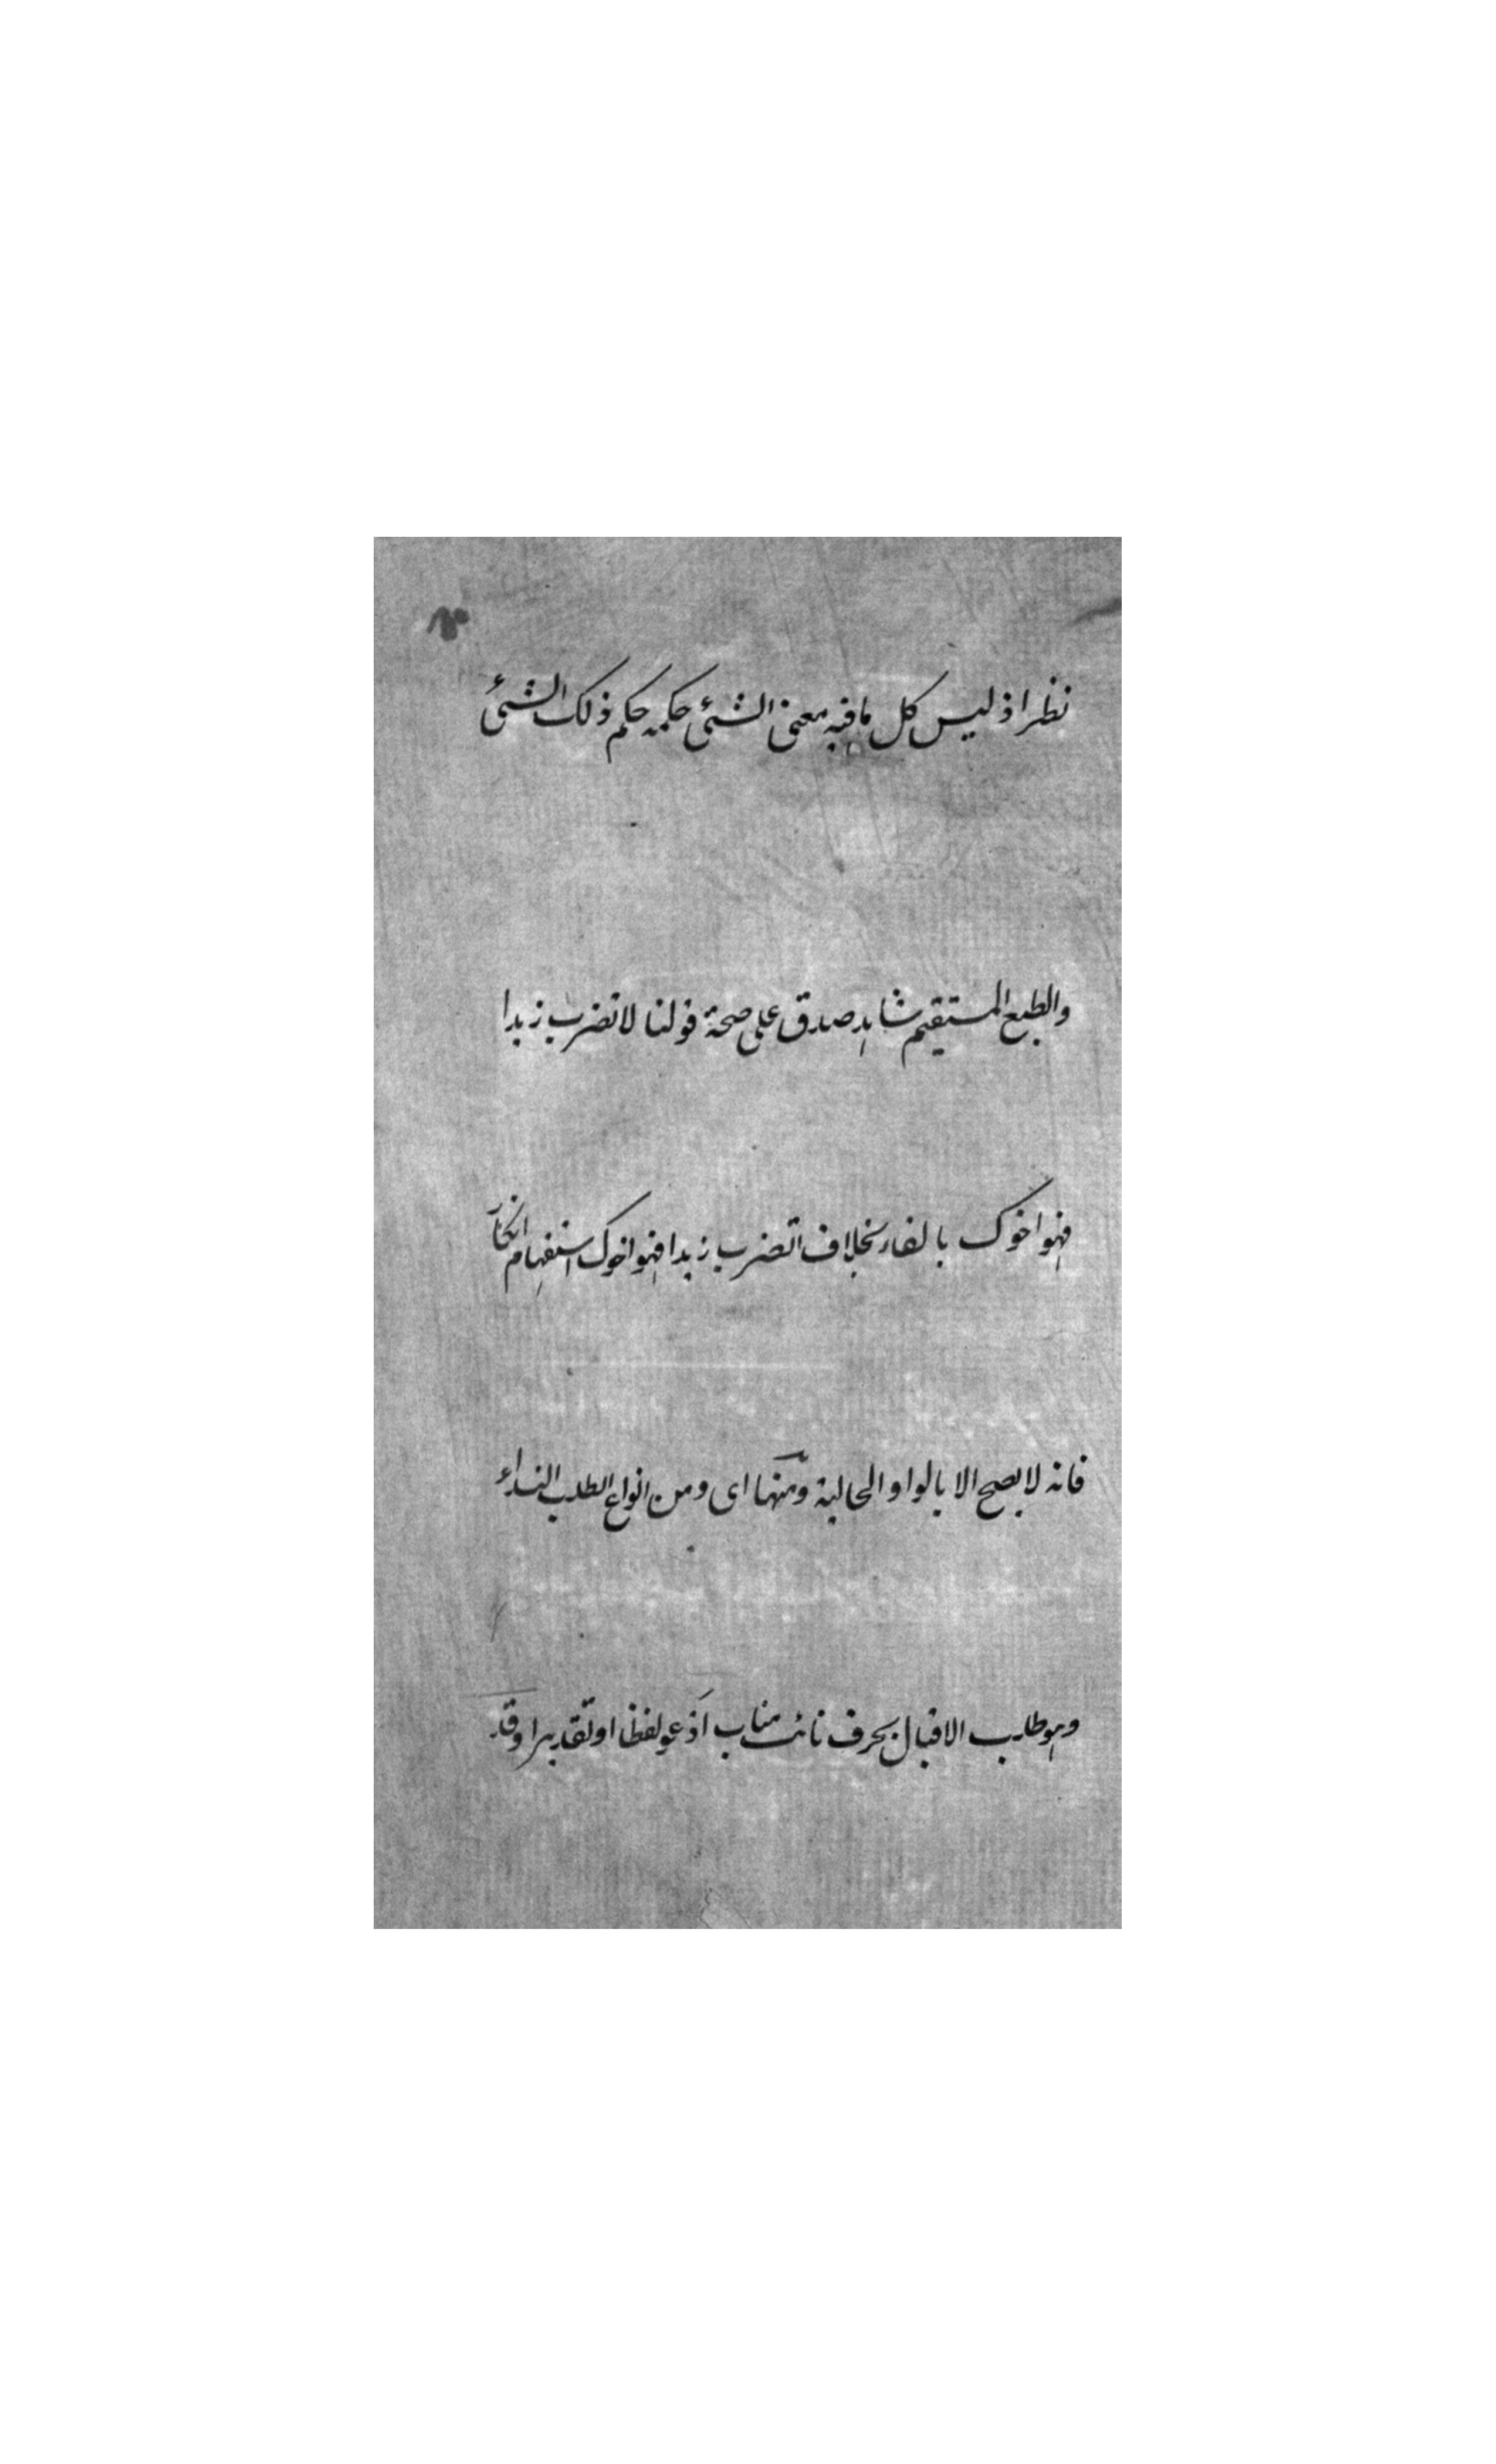 نظر اذ ليس كل ما فيه معنى الشئ حكمه حكم ذلك الشئ
والطبع المستقيم شاهد صدق على صحة قولنا لا تضرب زيدا
فهو اخوك بالفاء بخلاف اتضرب زيدا فهو اخوك استفهام انكار
فانه لا يصح الا بالواو الحالية ومنها اى ومن انواع الطلب النداء
وهو طلب الاقبال بحرف نائب مناب ادعو لفظا او تقديرا وقد